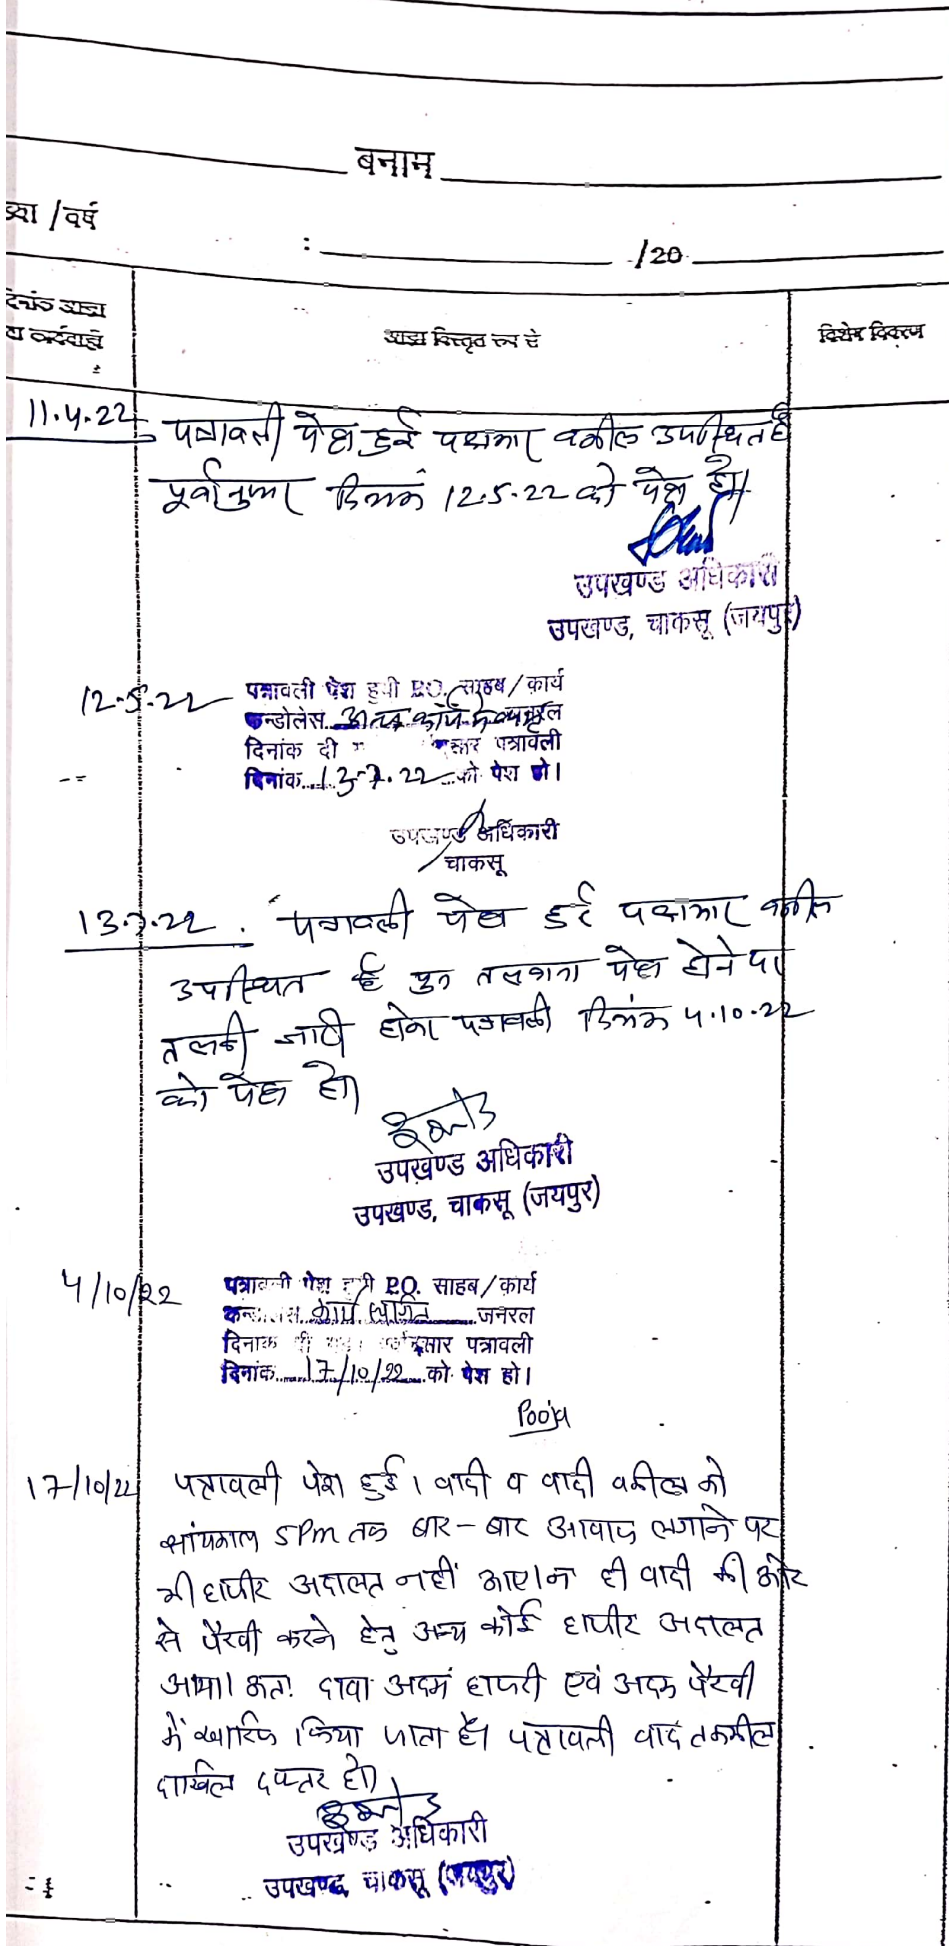 बनाम
/वर्ष
: /20
आज्ञा विस्तृत रूप से
विशेष विवरण
11.4.22 पत्रावली पेश हुई पक्षकार वकील उपस्थित है
पूर्वानुसार दिनांक 12.5.22 को पेश हो।
उपखण्ड अधिकारी
उपखण्ड, चाकसू (जयपुर)
12.5.22 पत्रावली पेश हुयी P.O. साहब/कार्य
कन्डोलेस अन्य कार्य में व्यस्त
दिनांक दी पत्रावली
दिनांक 13-7.22 को पेश हो।
उपखण्ड अधिकारी
चाकसू
13.7.22. पत्रावली पेश हुई पक्षकार वकील
उपस्थित है पुन तलवाना पेश होने पर
तलबी जारी होकर पत्रावली दिनांक 4.10.22
को पेश हो।
उपखण्ड अधिकारी
उपखण्ड, चाकसू (जयपुर)
4/10/22 पत्रावली पेश हुयी P.O. साहब/कार्य
कार्य स्थगित जनरल
दिनांक दी पत्रावली
दिनांक 17/10/22 को पेश हो।
Pooja
17/10/22 पत्रावली पेश हुई। वादी व वादी वकील को
सांयकाल 5Pm तक बार-बार आवाज लगाने पर
भी हाजीर अदालत नहीं आए। न ही वादी की ओर
से पैरवी करने हेतु अन्य कोई हाजीर अदालत
आया। अतः दावा अदम हाजरी एवं अदम पैरवी
में खारिज किया जाता है। पत्रावली वाद तकमील
दाखिल दफ्तर हो।
उपखण्ड अधिकारी
उपखण्ड, चाकसू (जयपुर)